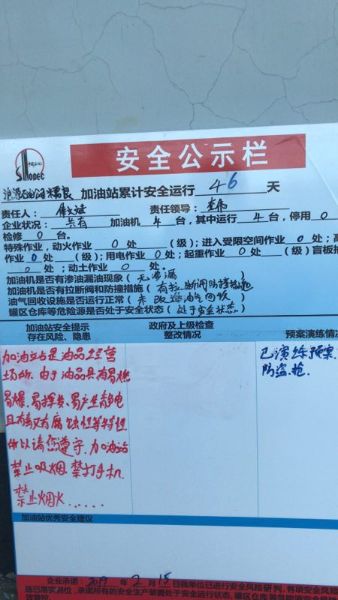 Sinopec
安全公示栏
加油站累计安全运行 46 天
责任人： 责任领导：
企业状况： 共有 加油机 4 台，其中运行 4 台，停用 0
检修 0 台。
特殊作业，动火作业 0 处（ 级）；进入受限空间作业 0 处；高
作业 0 处（ 级）；用电作业 0 处；起重作业 0 处（ 级）；盲板抽
0 处；动土作业 0 处
加油机是否有渗油漏油现象（无渗漏）
加油机是否有拉断阀和防撞措施（有拉断阀防撞措施
油气回收设施是否运行正常（未改造油气回收
罐区仓库等危险源是否处于安全状态（处于安全状态）
加油站安全提示
存在风险、隐患
政府及上级检查
整改情况
预案演练情况
加油站是油品经营
场所，由于油品具有易燃
易爆、易挥发、易产生静电
且有毒又有腐蚀性等特性
所以请您遵守，加油站
禁止吸烟，禁打手机，
禁止烟火……
已演练预案
防盗抢。
加油站优秀安全建议
企业承诺：2019 年 2 月 15 日我单位已进行安全风险研判，各项安全风险